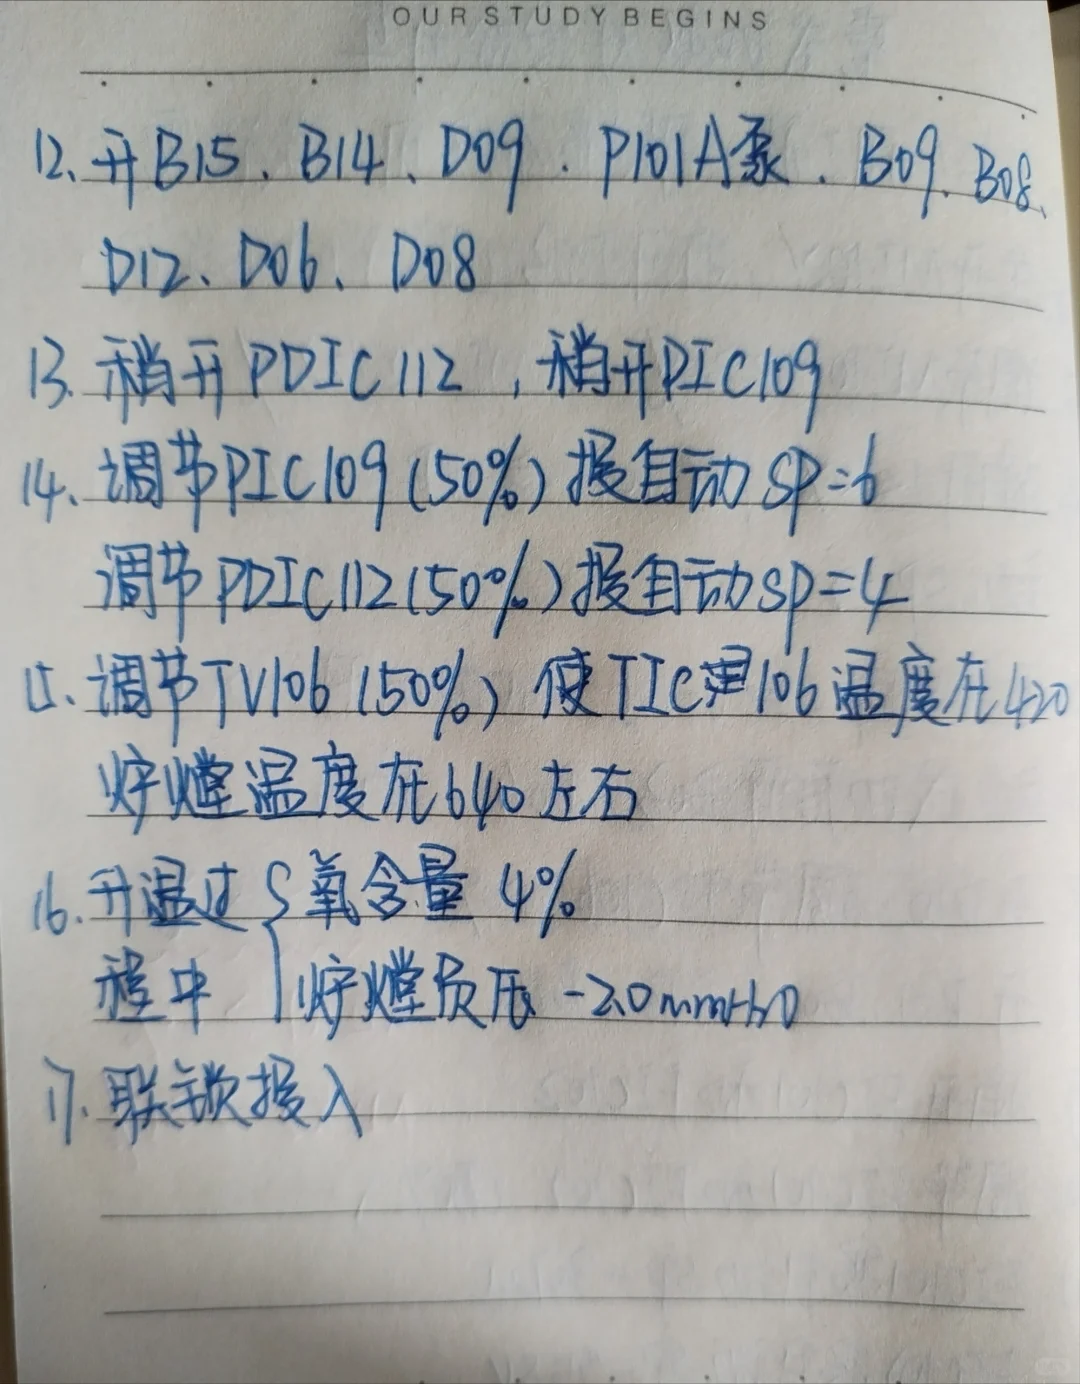 OUR STUDY BEGINS
12、开B15、B14、D09、P101A泵、B09、B08、
D12、D06、D08
13、稍开PDIC112，稍开PIC109
14、调节PIC109(50%)投自动SP=6
调节PDIC112(50%)投自动SP=4
15、调节TV106(50%)使TIC106温度在420
炉膛温度在640左右
16.升温过 { 氧含量 4%
程中 炉膛负压 -2.0mmH2O
17.联锁投入